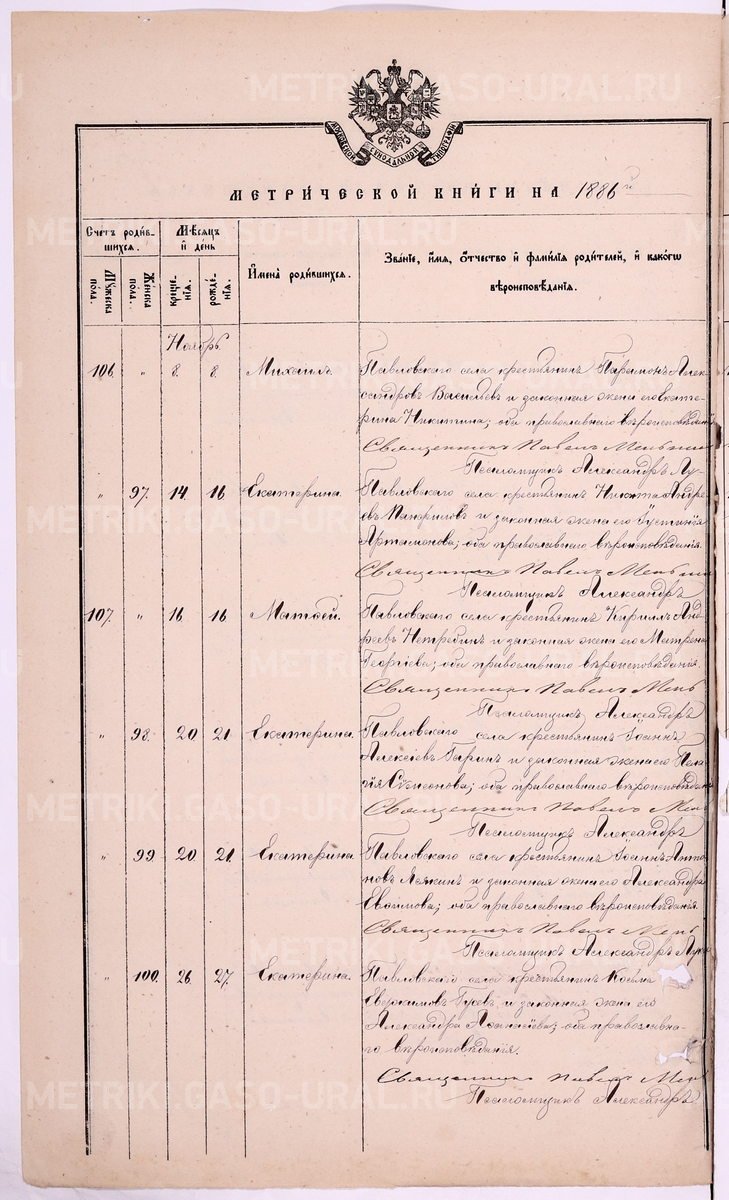 METRIK.GASO-URAL.RU
МОСКОВСКОЙ СѴНОДАЛЬНОЙ ТИПОГРАФІИ
МЕТРИ́ЧЕСКОЙ КНИ́ГИ НА 1886 й
Счетъ роди́вшихся.
Мꙋжеска пола.
Же́нска пола.
Мѣ́сяцъ и де́нь
креще́нія.
рожде́нія.
И҆мена̀ роди́вшихся.
Зва́ніе, и҆́мя, ѻ҆́тчество и҆ фами́лїѧ роди́телей, и҆ како́гѡ
вѣроисповѣ́данїѧ.
Ноябрь.
106. " 8. 8. Михаилъ. Павловскаго села крестьянинъ Парамонъ Алек-
сандровъ Васильевъ и законная жена его Екате-
рина Никитина; оба православнаго вѣроисповѣданія
Священникъ Павелъ Меньшин
Псаломщикъ Александръ Лу-
" 97. 14. 16 Екатерина. Павловскаго села крестьянинъ Никита Андре-
евъ Панфиловъ и законная жена его Іустинія
Артамонова; оба православнаго вѣроисповѣданія.
Священникъ Павелъ Меньши
Псаломщикъ Александръ
107. " 16. 16 Матѳей. Павловскаго села крестьянинъ Кириллъ Анд-
реевъ Нетребинъ и законная жена его Матрена
Георгіева; оба православнаго вѣроисповѣданія.
Священникъ Павелъ Мень
Псаломщикъ Александръ
" 98. 20 21. Екатерина. Павловскаго села крестьянинъ Іоаннъ
Алексіевъ Гаринъ и законная жена его Пела-
гія Сѵмеонова; оба православнаго вѣроисповѣданія
Священникъ Павелъ Мень
Псаломщикъ Александръ
" 99 20. 21. Екатерина Павловскаго села крестьянинъ Іоаннъ Анто-
новъ и законная жена его Александра
Евѳимова; оба православнаго вѣроисповѣданія.
Священникъ Павелъ Мень
Псаломщикъ Александръ Лук
" 100. 26. 27. Екатерина. Павловскаго села крестьянинъ Косьма
Гусевъ и законная жена его
Александра Аѳанасіева; оба православна-
го вѣроисповѣданія.
Священникъ Павелъ Мень
Псаломщикъ Александръ